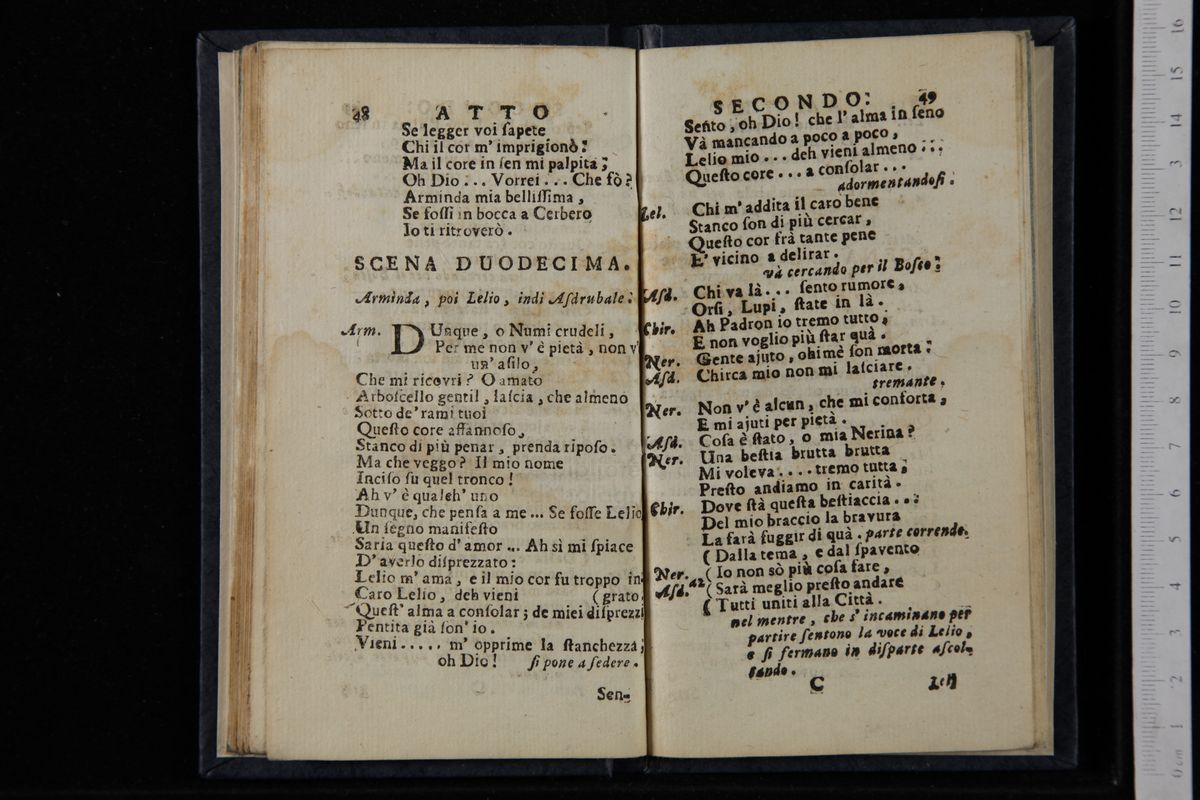 48 ATTO
Se legger voi ſapete
Chi il cor m' imprigionò:
Ma il core in ſen mi palpita;
Oh Dio ... Vorrei ... Che fò?
Arminda mia belliſſima,
Se foſſi in bocca a Cerbero
Io ti ritroverò.
SCENA DUODECIMA.
Arminda, poi Lelio, indi Aſdrubale:
Arm. DUnque, o Numi crudeli,
Per me non v' è pietà, non v'
un' aſilo,
Che mi ricovri? O amato
Arboſcello gentil, laſcia, che almeno
Sotto de' rami tuoi
Queſto core affannoſo,
Stanco di più penar, prenda ripoſo.
Ma che veggo? Il mio nome
Inciſo ſu quel tronco!
Ah v' è qualch' uno
Dunque, che penſa a me ... Se foſſe Lelio
Un ſegno manifeſto
Saria queſto d' amor ... Ah sì mi ſpiace
D' averlo diſprezzato:
Lelio m' ama, e il mio cor fu troppo in-
Caro Lelio, deh vieni (grato
Queſt' alma a conſolar; de miei diſprezzi
Pentita già ſon' io.
Vieni ..... m' opprime la ſtanchezza;
oh Dio! ſi pone a ſedere.
Sen-
SECONDO: 49
Sento, oh Dio! che l' alma in ſeno
Và mancando a poco a poco,
Lelio mio ... deh vieni almeno ...
Queſto core ... a conſolar ...
adormentandoſi.
Lel. Chi m' addita il caro bene
Stanco ſon di più cercar,
Queſto cor frà tante pene
E' vicino a delirar.
và cercando per il Boſco:
Aſd. Chi va là ... ſento rumore,
Orſi, Lupi, ſtate in là.
Chir. Ah Padron io tremo tutto,
E non voglio più ſtar quà.
Ner. Gente ajuto, ohimè ſon morta:
Aſd. Chirca mio non mi laſciare.
tremante.
Ner. Non v' è alcun, che mi conforta,
E mi ajuti per pietà.
Aſd. Coſa è ſtato, o mia Nerina?
Ner. Una beſtia brutta brutta
Mi voleva .... tremo tutta;
Preſto andiamo in carità.
Chir. Dove ſtà queſta beſtiaccia ...
Del mio braccio la bravura
La farà fuggir di quà. parte correndo.
( Dalla tema, e dal ſpavento
Ner. ( Io non sò più coſa fare,
Aſd. a2 ( Sarà meglio preſto andare
( Tutti uniti alla Città.
nel mentre, che s' incaminano per
partire ſentono la voce di Lelio,
e ſi fermano in diſparte aſcol-
tando.
C Lel
16
15
14
13
12
11
10
9
8
7
6
5
4
3
2
1
0 cm